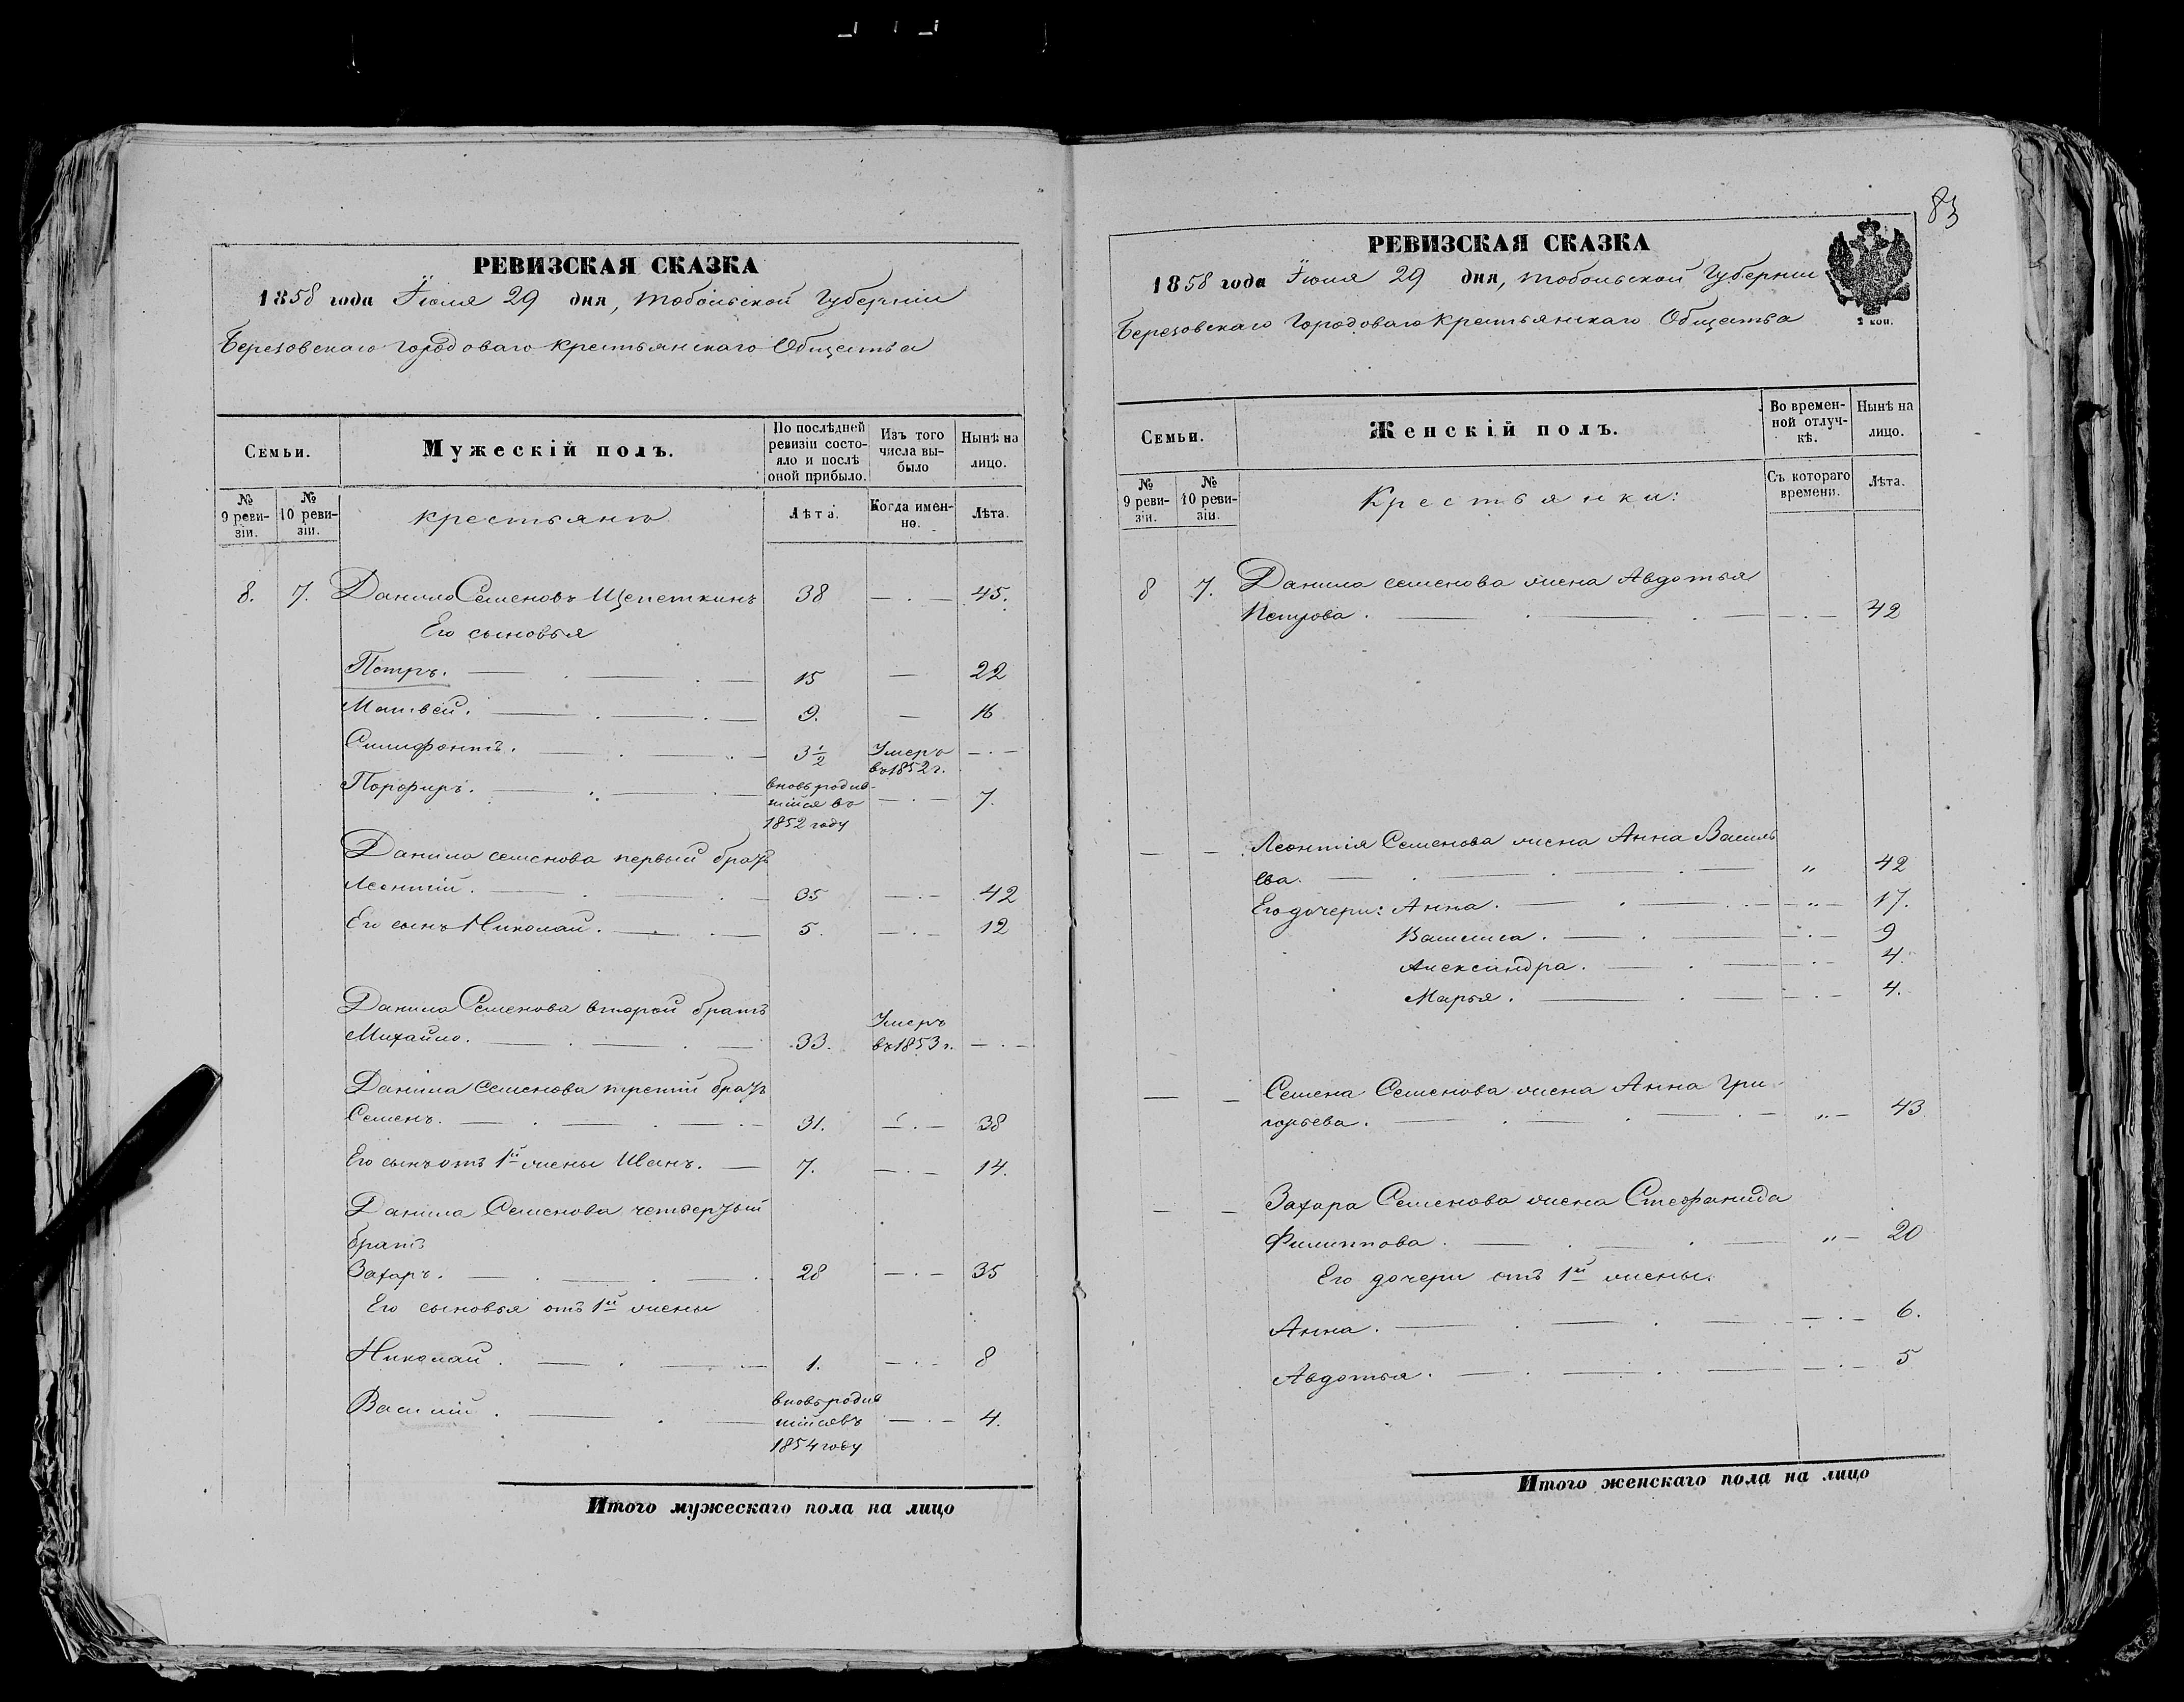 РЕВИЗСКАЯ СКАЗКА
1858 года Іюля 29 дня, Тобольской Губерніи
Березовскаго Городоваго Крестьянскаго Общества
Семьи.
Мужескій полъ.
По послѣдней ревизіи состояло и послѣ оной прибыло.
Изъ того числа выбыло
Нынѣ на лицо.
№ 9 ревизіи.
№ 10 ревизіи.
крестьянъ
Лѣта.
Когда именно.
Лѣта.
8. 7. Данило Семеновъ Щепеткинъ 38 — . — 45.
Его сыновья
Петръ. — . — . — 15 — 22
Матвей. — . — . — 9. — 16
Симифонтъ. — . — . — 3 1/2 Умеръ въ 1852 г. — . —
Порфиръ. — . — . — вновь родив-
шійся въ
1852 году — . — 7.
Данила Семенова первый братъ
Леонтій. — . — . — 35 — . — 42
Его сынъ Николай. — . — . — 5. — . — 12
Данила Семенова второй братъ
Михайло. — . — . — 33. Умеръ въ 1853 г. — . —
Данила Семенова третій братъ
Семенъ. — . — . — 31. — . — 38
Его сынъ отъ 1й жены Иванъ. — 7. — . — 14.
Данила Семенова четвертый
братъ
Захаръ. — . — . — . 28 — . — 35
Его сыновья отъ 1й жены
Николай. — . — 1. — . — 8
Василій. — . — вновь родив
шійся въ
1854 году — . — 4.
Итого мужескаго пола на лицо
83
РЕВИЗСКАЯ СКАЗКА
1858 года Іюля 29 дня, Тобольской Губерніи
Березовскаго Городоваго Крестьянскаго Общества
2 коп.
Семьи.
Женскій полъ.
Во временной отлучкѣ.
Нынѣ на лицо.
№ 9 ревизіи.
№ 10 ревизіи.
Крестьянки:
Съ котораго времени.
Лѣта.
8 7. Данила Семенова жена Авдотья
Петрова. — . — . — — . — 42
— — Леонтія Семенова жена Анна Василь
ева. — . — . — . — „ 42
Его дочери: Анна. — . — . — — „ — 17.
Василиса. — . — — . — 9
Александра. — . — — . — 4.
Марья. — . — — . — 4.
— — Семена Семенова жена Анна Гри-
горьева. — . — . — . — „ — 43
— — Захара Семенова жена Стефанида
Филиппова. — . — . — „ — 20
Его дочери отъ 1й жены.
Анна. — . — . — — . — 6.
Авдотья. — . — . — — . — 5
Итого женскаго пола на лицо